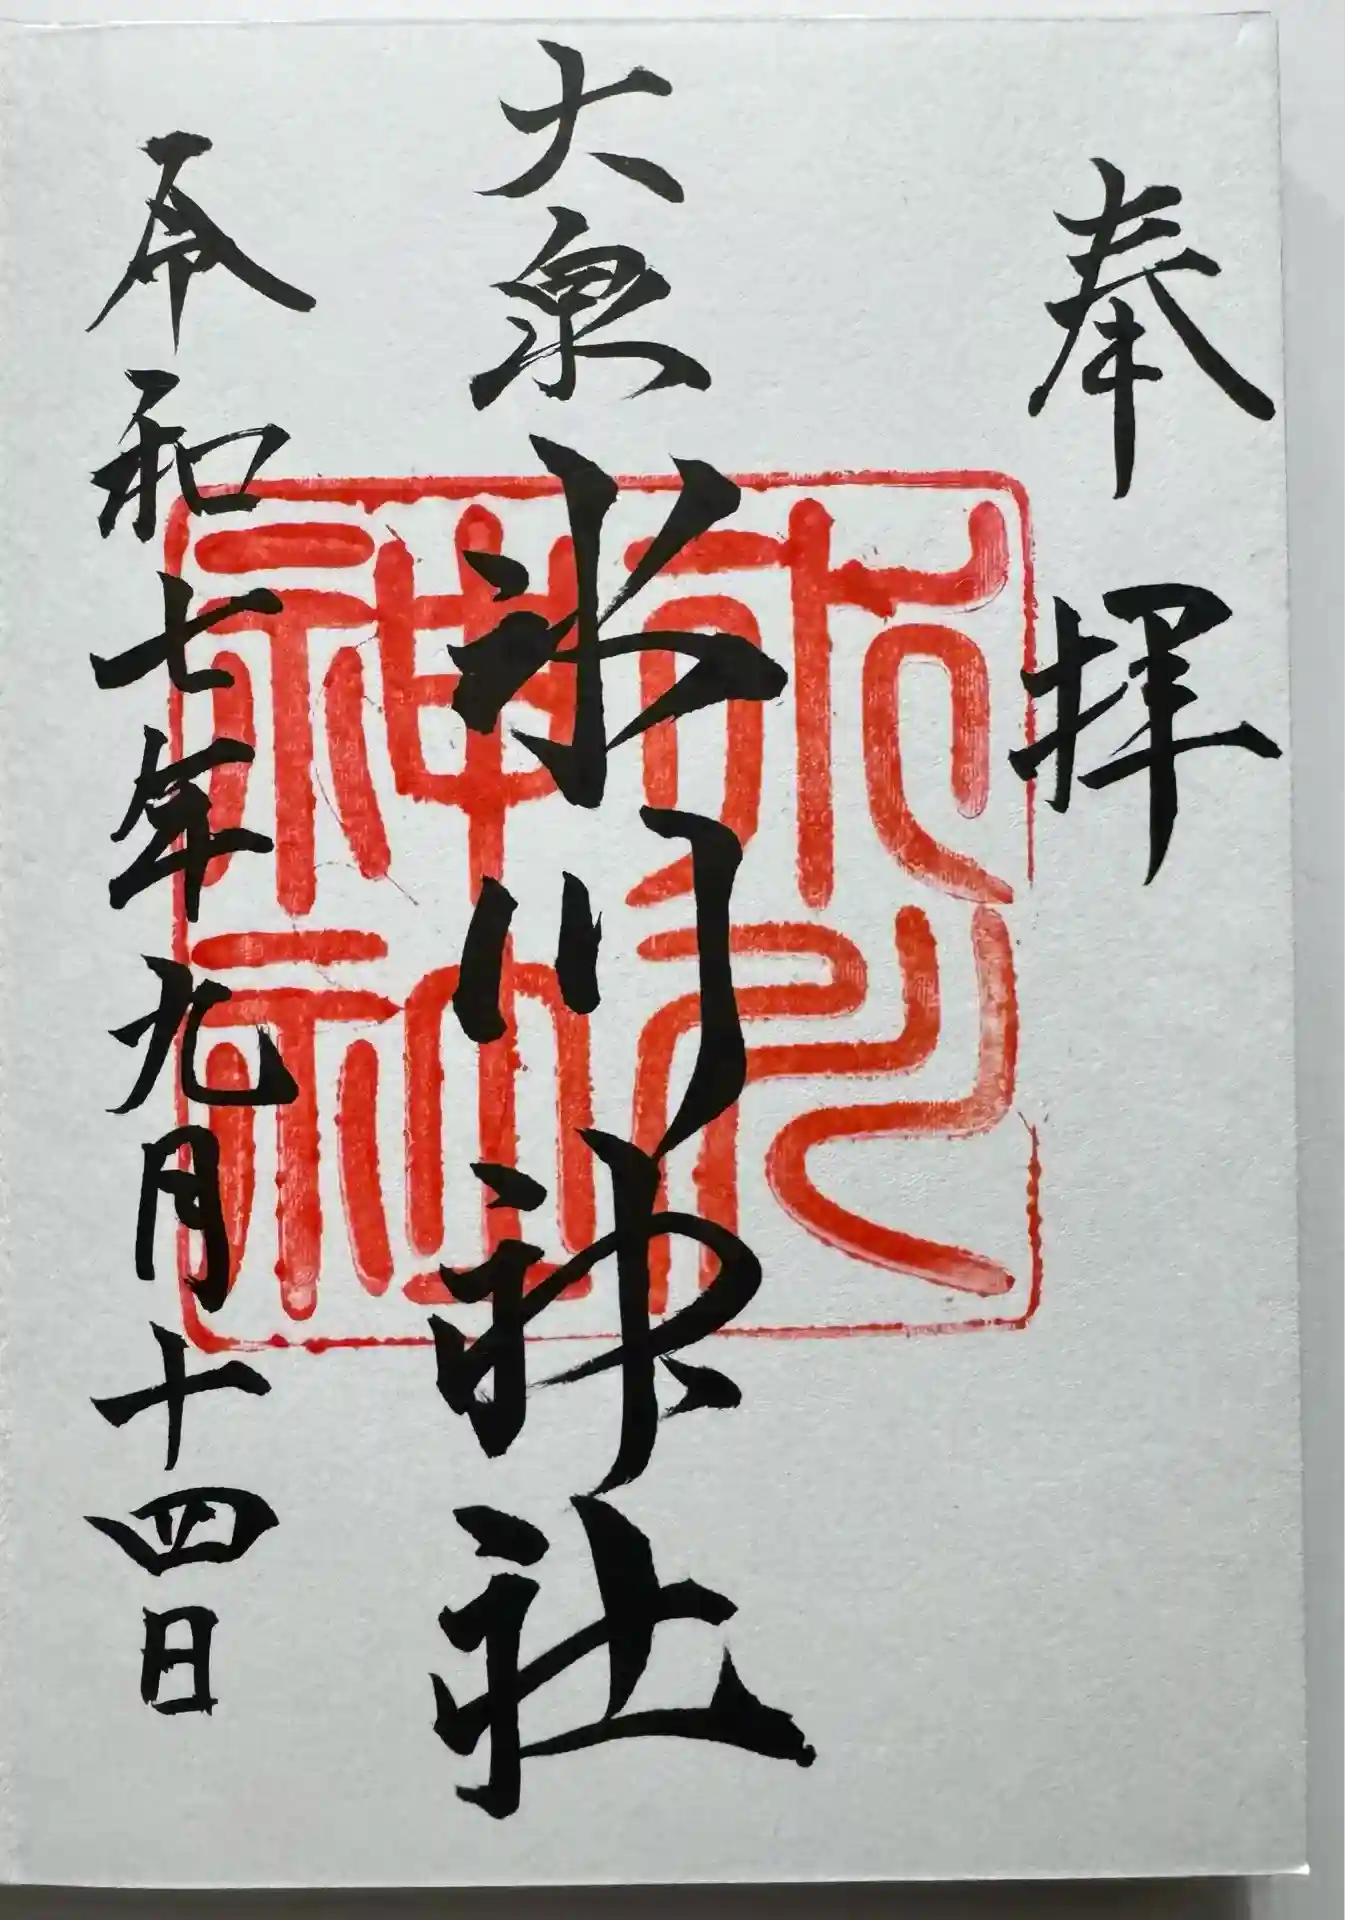 奉拝
大泉氷川神社
令和七年九月十四日
神社